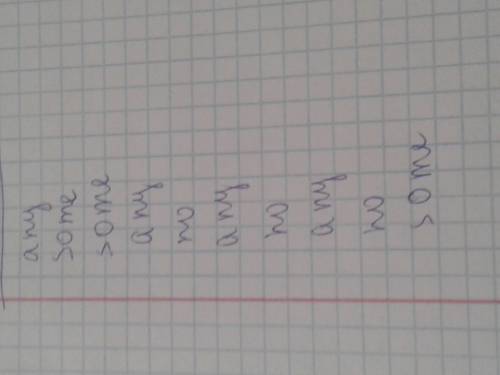 any
some
some
any
no
any
no
any
no
some